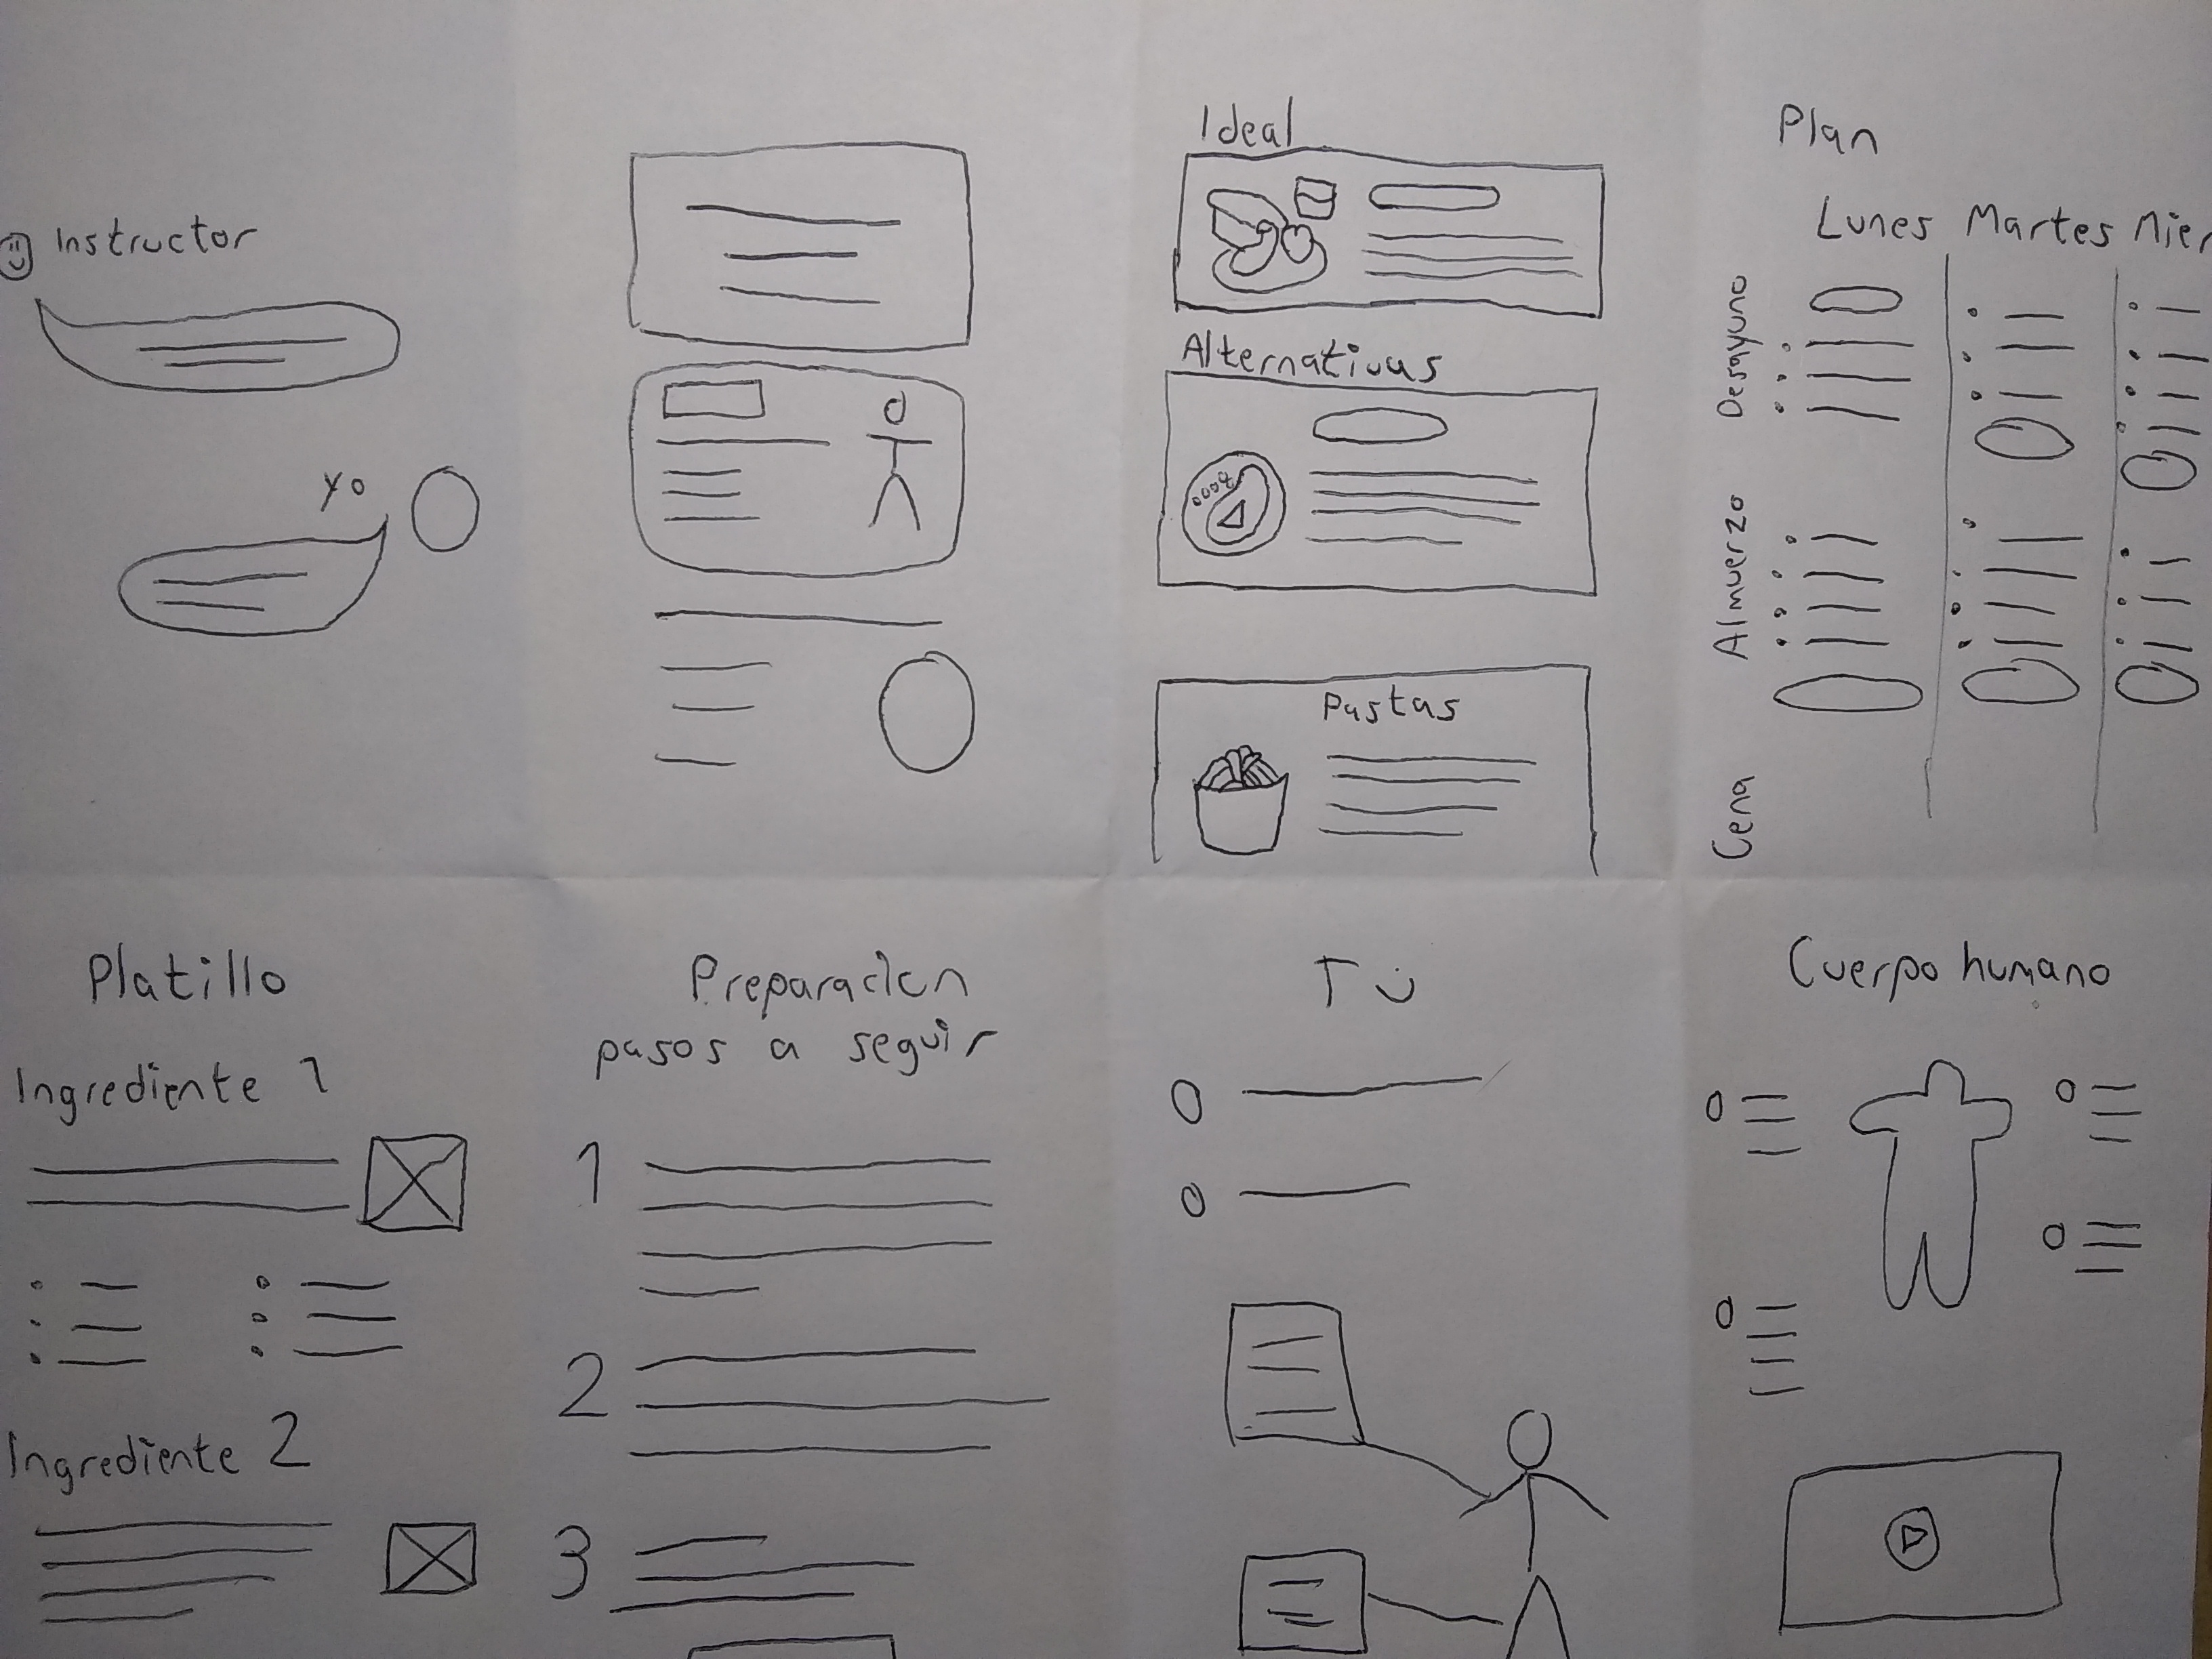 Instructor
yo
Ideal
Alternativas
Pastas
Plan
Lunes Martes Mier
Desayuno
Almuerzo
Cena
Platillo
Ingrediente 1
Ingrediente 2
Preparacion
pasos a seguir
1
2
3
Tú
Cuerpo humano